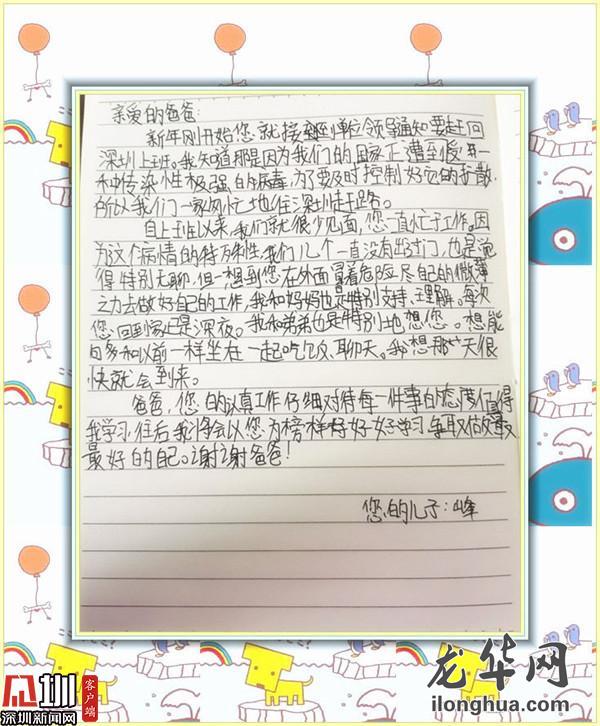 亲爱的爸爸:
新年刚开始您就接到单位领导通知要赶回
深圳上班。我知道那是因为我们的国家正遭到受一
种传染性极强的病毒,为了要及时控制好它的扩散,
所以我们一家匆忙地往深圳赶路。
自上班以来,我们就很少见面,您一直忙于工作。因
为这个病情的特殊性,我们几个一直没有出过门,也是觉
得特别无聊,但一想到您在外面冒着危险尽自己的微薄
之力去做好自己的工作,我和妈妈也是特别支持、理解。每次
您回到家上是深夜。我和弟弟也是特别地想您。想能
够和以前一样坐在一起吃饭、聊天。我想那一天很
快就会到来。
爸爸,您的认真工作仔细对待每一件事的态度值得
我学习,往后我将会以您为榜样好好学习争取做最
最好的自己。谢谢爸爸!
您的儿子:峰
深圳新闻网
客户端
龙华网
ilonghua.com